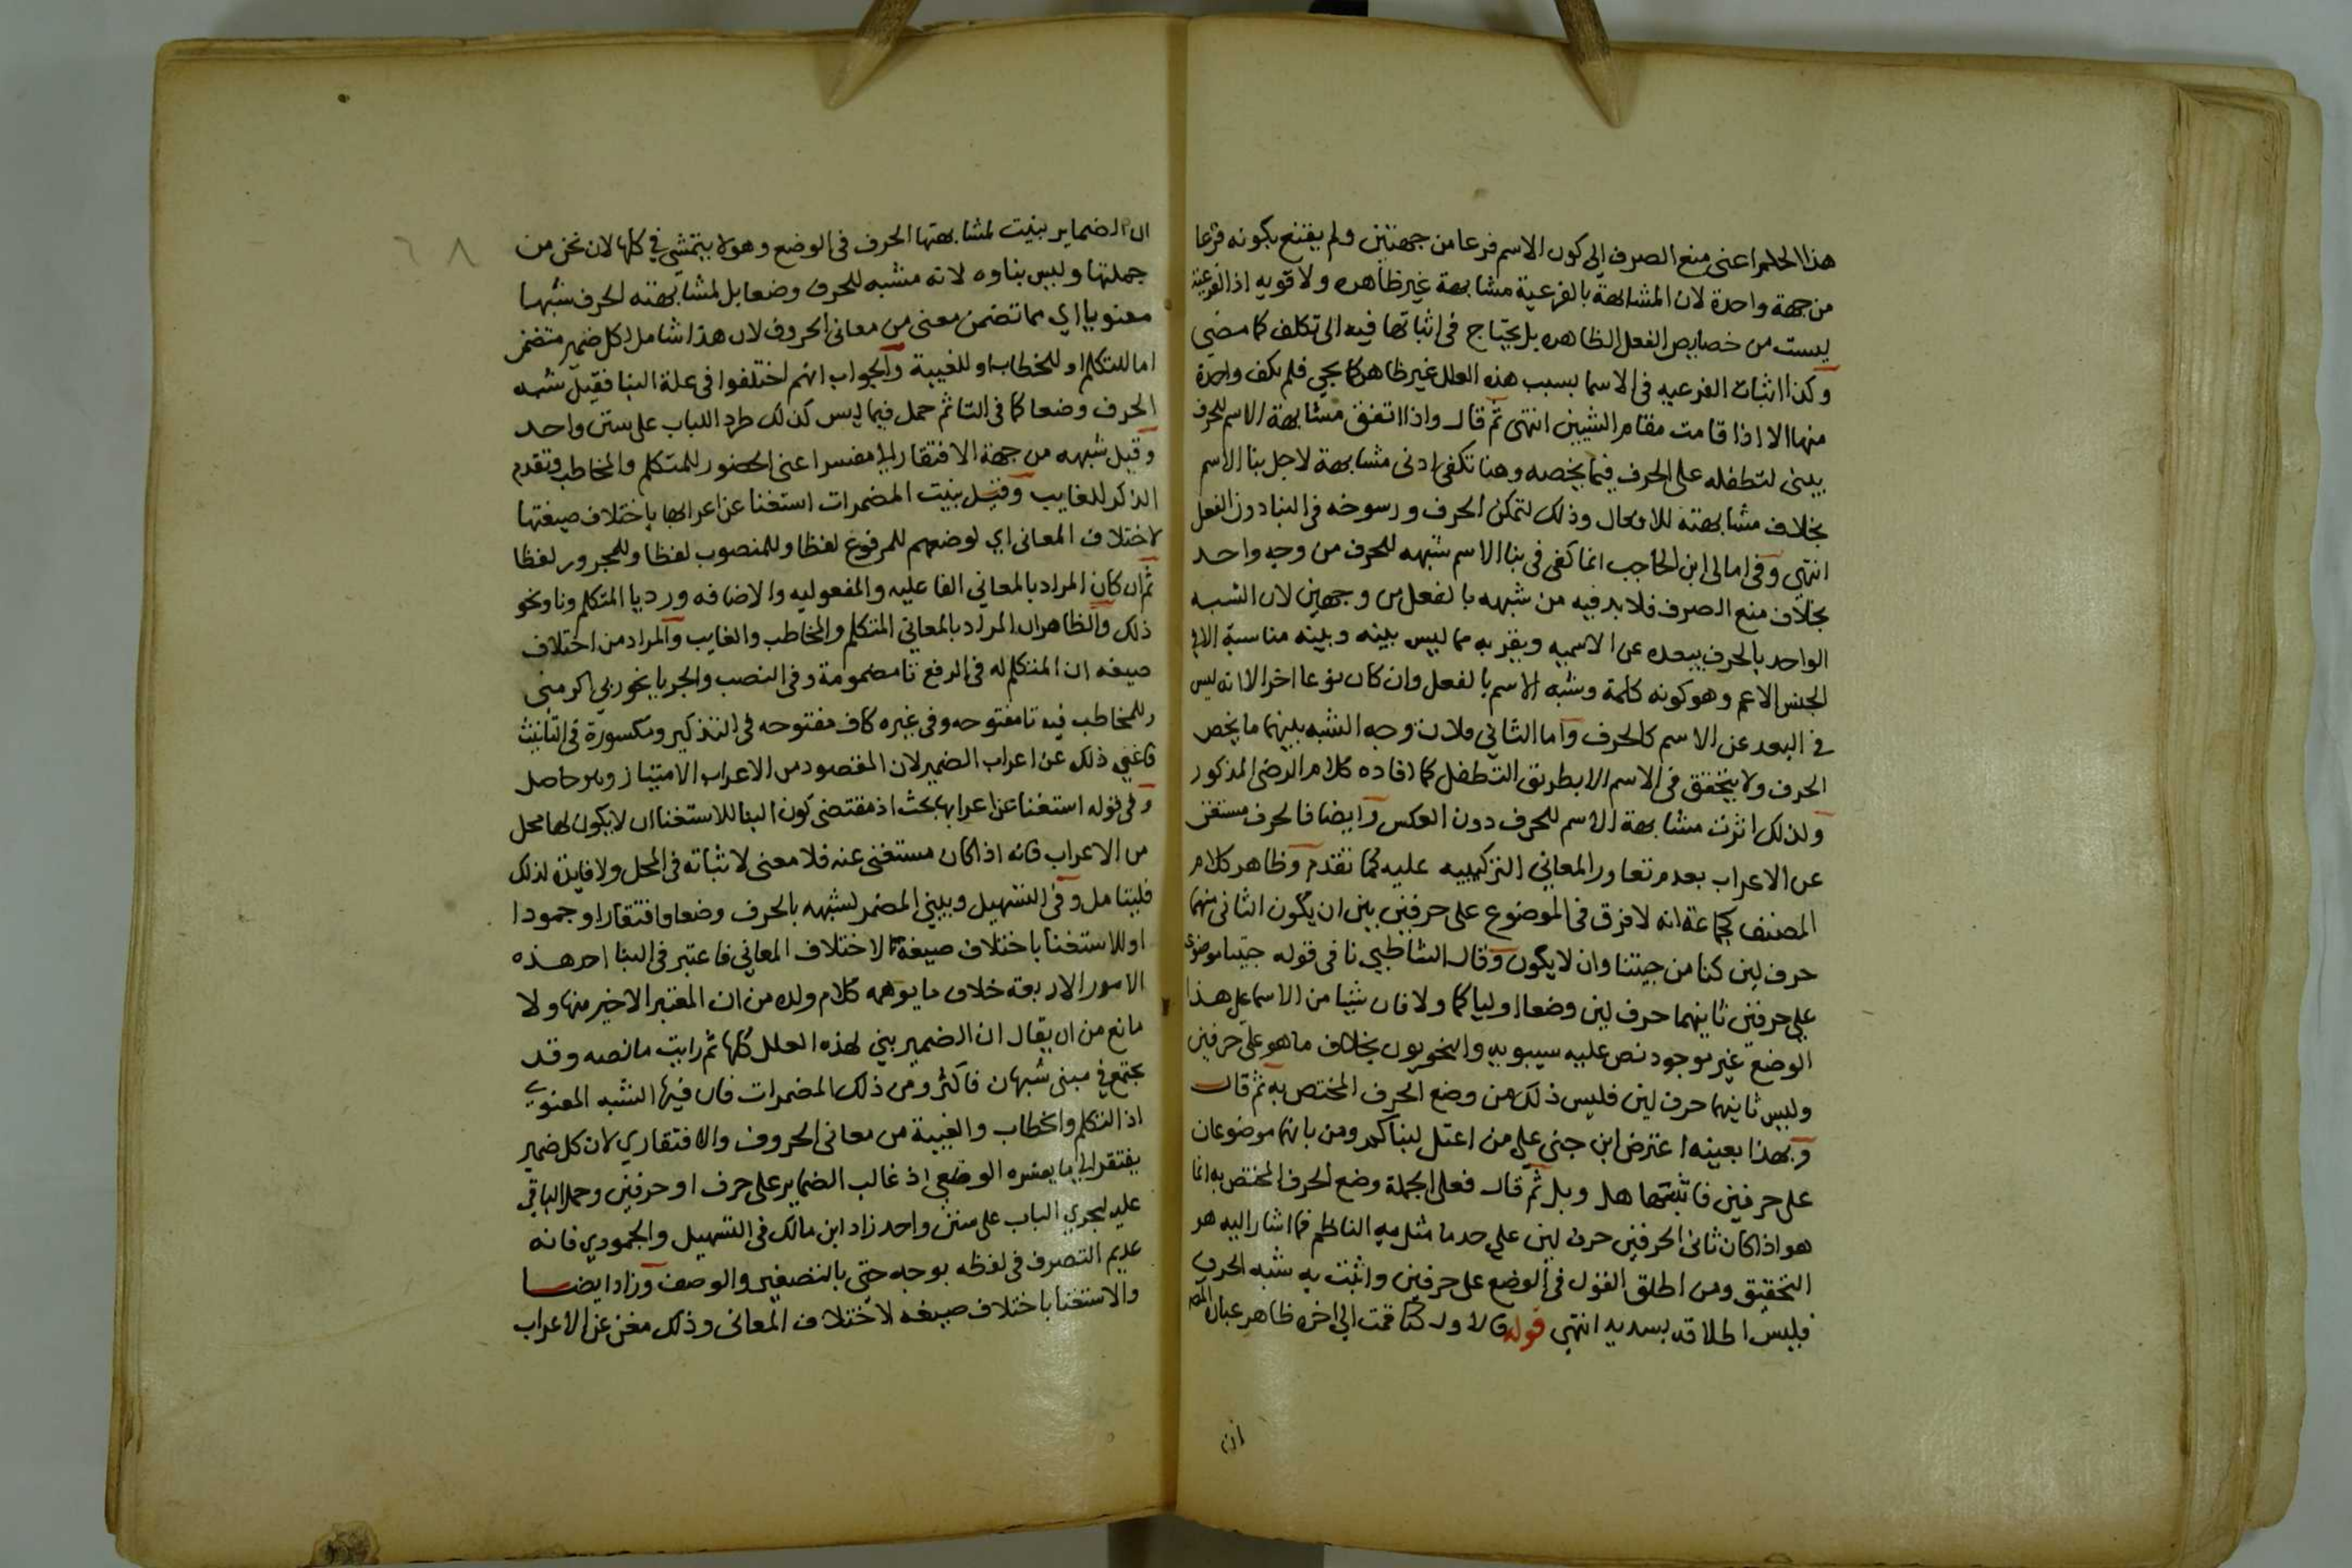 هذا الحكم اعنى منع الصرف الى كون الاسم فرعا من جهتين ولم يقنع بكونه فرعا
من جهة واحدة لان المشابهة بالفرعية مشابهة غير ظاهره ولا قويه اذ الفرعية
ليست من خصايص الفعل الظاهره بل يحتاج فى اثباتها فيه الى تكلف كما مضى
وكذا اثبات الفرعيه فى الاسما بسبب هذه العلل غير ظاهر كما يجي فلم تكف واحدة
منها الا اذا قامت مقام الشيين انتهى ثم قال واذا اتفق مشابهة الاسم للحرف
يبنى لتطفله على الحرف فيما يخصه وهنا تكفى ادنى مشابهة لاجل بنا الاسم
بخلاف مشابهته للافعال وذلك لتمكن الحرف ورسوخه فى البنا دون الفعل
انتهي وفى امالى ابن الحاجب انما كفى فى بنا الاسم شبهه للحرف من وجه واحد
بخلاف منع الصرف فلا بد فيه من شبهه بالفعل من وجهين لان الشبه
الواحد بالحرف يبعده عن الاسميه ويقربه مما ليس بينه وبينه مناسبة الا فى
الجنس الاعم وهو كونه كلمة وشبه الاسم بالفعل وان كان نوعا اخر الا انه ليس
فى البعد عن الاسم كالحرف واما الثاني فلان وجه الشبه بينهما ما يخص
الحرف ولا يتحقق فى الاسم الا بطريق التطفل كما افاده كلام الرضى المذكور
ولذلك اثرت مشابهة الاسم للحرف دون العكس وايضا فالحرف مستغن
عن الاعراب بعدم تعاور المعاني التركيبيه عليه كما تقدم وظاهر كلام
المصنف كجماعة انه لا فرق فى الموضوع على حرفين بين ان يكون الثانى منهما
حرف لين كنا من جيتنا وان لا يكون وقال الشاطبي نا فى قوله جيتنا موضوع
على حرفين ثانيهما حرف لين وضعا اوليا كما ولا فان شيا من الاسما على هذا
الوضع غير موجود نص عليه سيبويه والنحويون بخلاف ما هو على حرفين
وليس ثانيهما حرف لين فليس ذلك من وضع الحرف المختص به ثم قال
وبهذا بعينه اعترض ابن جنى على من اعتل لبنا كم ومن بانهما موضوعان
على حرفين فاشبها هل وبل ثم قال فعلى الجملة وضع الحرف المختص به انما
هو اذا كان ثانى الحرفين حرف لين على حد ما مثل به الناظم فما اشار اليه هو
التحقيق ومن اطلق القول فى الوضع على حرفين واثبت به شبه الحرف
فليس اطلاقه بسديد انتهى قوله فالاول كتا قمت الى اخره ظاهر عبارة المص
ان
٦٨
ان الضماير بنيت لمشابهتها الحرف فى الوضع وهو لا يتمشي في كلها لان نحن من
جملتها وليس بناوه لانه مشبه للحرف وضعا بل لمشابهته الحرف شبها
معنويا اي مما تضمن معنى من معانى الحروف لان هذا شامل لكل ضمير متضمن
اما للتكلم او للخطاب او للغيبة والجواب انهم اختلفوا فى علة البنا فقيل شبه
الحرف وضعا كما فى التا ثم حمل فيما ليس كذلك طرد اللباب على سنن واحد
وقيل شبهه من جهة الافتقار الى مفسر اعنى الحضور للمتكلم والمخاطب وتقدم
الذكر للغايب وقيل بنيت المضمرات استغنا عن اعرابها باختلاف صيغتها
لاختلاف المعانى اي لوضعهم للمرفوع لفظا وللمنصوب لفظا وللمجرور لفظا
ثم ان كان المراد بالمعاني الفاعليه والمفعوليه والاضافه ورد يا المتكلم ونا ونحو
ذلك والظاهر ان المراد بالمعاني المتكلم والمخاطب والغايب والمراد من اختلاف
صيغه ان المتكلم له فى الرفع تا مضمومة وفى النصب والجر يا نحو ربي اكرمنى
وللمخاطب فيه تا مفتوحه وفى غيره كاف مفتوحه فى التذكير ومكسورة فى التانيث
فاغنى ذلك عن اعراب الضمير لان المقصود من الاعراب الامتياز وهو حاصل
وفى قوله استغنا عن اعرابها بحث اذ مقتضى كون البنا للاستغنا ان لا يكون لها محل
من الاعراب فانه اذا كان مستغنى عنه فلا معنى لاثباته فى المحل ولا فايدة لذلك
فليتامل وفى التسهيل وبني المضمر لشبهه بالحرف وضعا وافتقارا وجمودا
او للاستغنا باختلاف صيغة لاختلاف المعاني فاعتبر فى البنا احد هذه
الامور الاربعة خلاف ما يوهمه كلام ولده من ان المعتبر الاخير منها ولا
مانع من ان يقال ان الضمير بني لهذه العلل كلها ثم رايت ما نصه وقد
يجتمع في مبنى شبهان فاكثر ومن ذلك المضمرات فان فيها الشبه المعنوي
اذ التكلم والخطاب والغيبة من معانى الحروف والافتقاري لان كل ضمير
يفتقر الى ما يفسره الوضعي اذ غالب الضماير على حرف او حرفين وحمل الباقي
عليه ليجري الباب على سنن واحد زاد ابن مالك فى التسهيل والجمودي فانه
عديم التصرف فى لفظه بوجه حتى بالتصغير والوصف وزاد ايضا
والاستغنا باختلاف صيغه لاختلاف المعانى وذلك مغن عن الاعراب